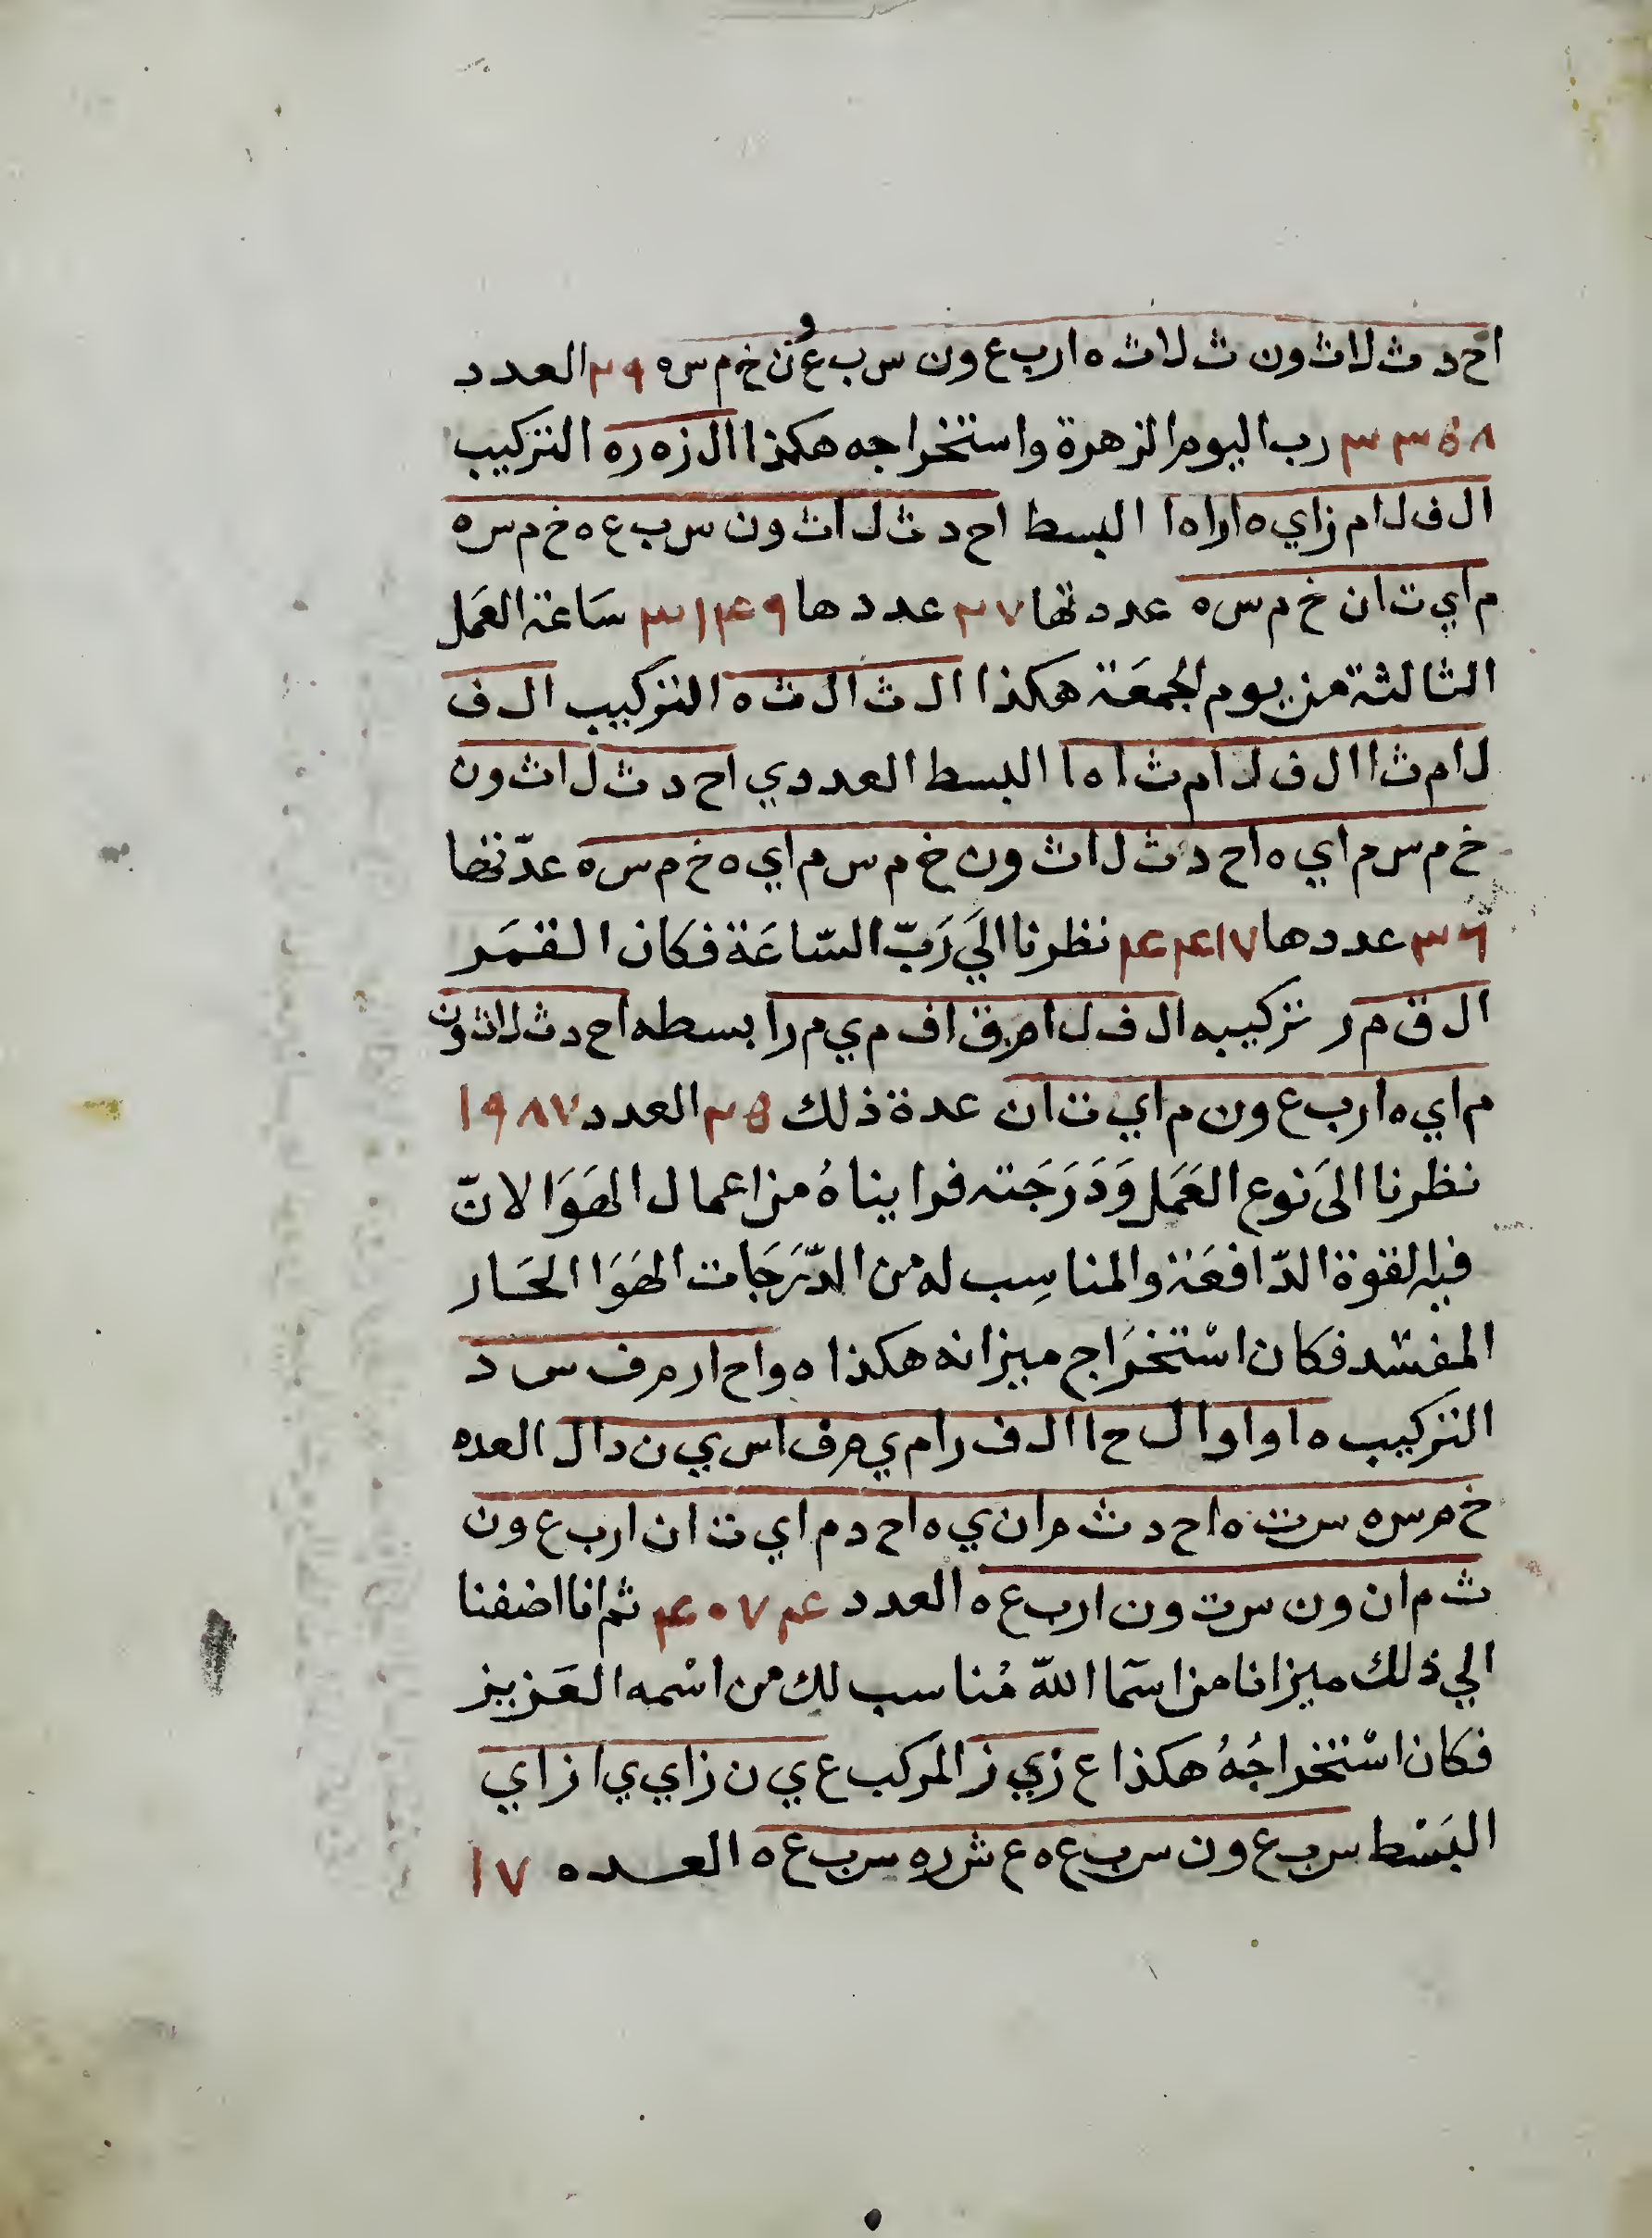 اح د ث لاث ون ث لاث ه ارب ع ون س ب ع ون خ م س ه ٢٩ العدد
٣٣٥٨ رب اليوم الزهرة واستخراجه هكذا ال ز ه ر ه التركيب
ال ف ل ام ز اي ه ا ر ا ه ا البسط اح د ث ل اث ون س ب ع ه خ م س ه
م اي ت ان خ م س ه عددتها ٢٧ عددها ٣١٤٩ سَاعة العَمل
الثالثة من يوم الجُمعَة هكذا ال ث ال ث ه التركيب ال ف
ل ام ث ا ال ف ل ام ث ا ه ا البسط العددي اح د ث ل اث ون
خ م س م اي ه اح د ث ل اث ون خ م س م اي ه خ م س ه عدّتها
٣٦ عددها ٤٤١٧ نظرنا الَي رَبّ السّاعَة فكان القمَر
ال ق م ر تركيبه ال ف ل ام ق اف م ي م را بسطه اح د ث لاث ون
م اي ه ارب ع ون م اي ت ان عدة ذلك ٢٥ العدد ١٩٨٧
نظرنا الىَ نوع العَمَل وَدَرَجَته فرايناهُ من اعمال الهَوَا لانّ
فيه القوة الدّافعَة والمناسِب له من الدّرَجَات الهَوَا الحَار
المفسد فكان اسْتخرَاج ميزانه هكذا ه و ا ح ا ر م ف س د
التركيب ه ا و ا و ا ل ح ا ال ف را م ي م ف ا س ي ن د ال العده
خ م س ه س ت ه اح د ث م ان ي ه اح د م اي ت ان ارب ع ون
ث م ان ون س ت ون ارب ع ه العدد ٤٠٧٤ ثم انا اضفنا
الي ذلك ميزانا من اسمآ اللّه مُناسب لك من اسْمه العَزيز
فكان اسْتخراجُهُ هكذا ع ز ي ز المركب ع ي ن ز اي ي ا ز اي
البَسْط س ب ع ون س ب ع ه ع ش ر ه س ب ع ه العده ١٧